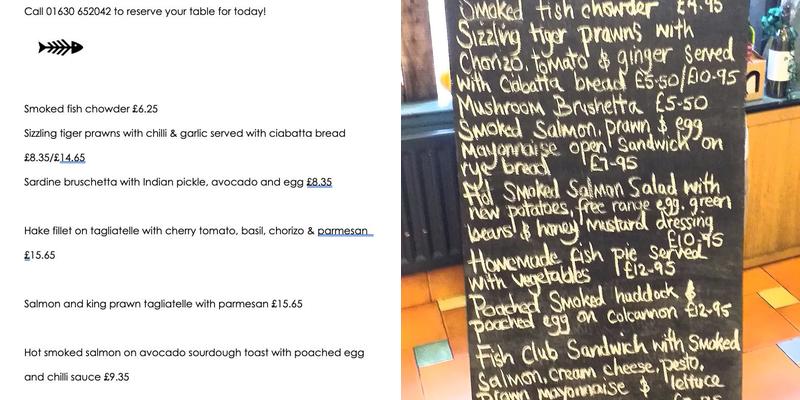 Call 01630 652042 to reserve your table for today!
Smoked fish chowder £6.25
Sizzling tiger prawns with chilli & garlic served with ciabatta bread
£8.35/£14.65
Sardine bruschetta with Indian pickle, avocado and egg £8.35
Hake fillet on tagliatelle with cherry tomato, basil, chorizo & parmesan
£15.65
Salmon and king prawn tagliatelle with parmesan £15.65
Hot smoked salmon on avocado sourdough toast with poached egg
and chilli sauce £9.35
Smoked fish chowder £4.95
Sizzling tiger prawns with
Chorizo, tomato & ginger served
with Ciabatta bread £5-50/£10-95
Mushroom Brushetta £5-50
Smoked Salmon, prawn & egg
Mayonnaise open Sandwich on
rye bread £7-95
Hot Smoked Salmon Salad with
new potatoes, free range egg, green
beans & honey mustard dressing
£10-95
Homemade fish pie served
with vegetables £12-95
Poached Smoked haddock &
poached egg on Colcannon £12-95
Fish Club Sandwich with Smoked
Salmon, cream cheese, pesto,
Prawn mayonnaise & lettuce